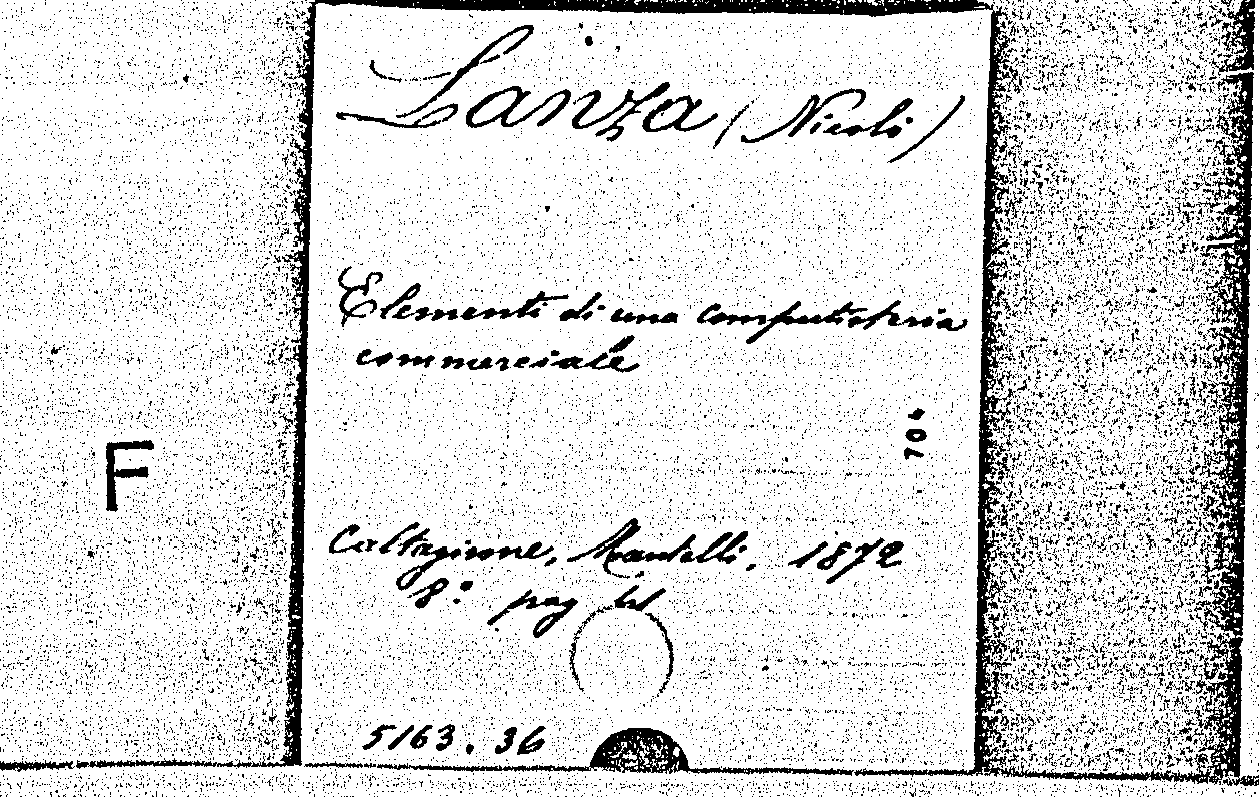 Lanza (Nicolò)
Elementi di una computisteria
commerciale
704
F
Caltagirone, Mantelli, 1872
8.° pag
5163.36